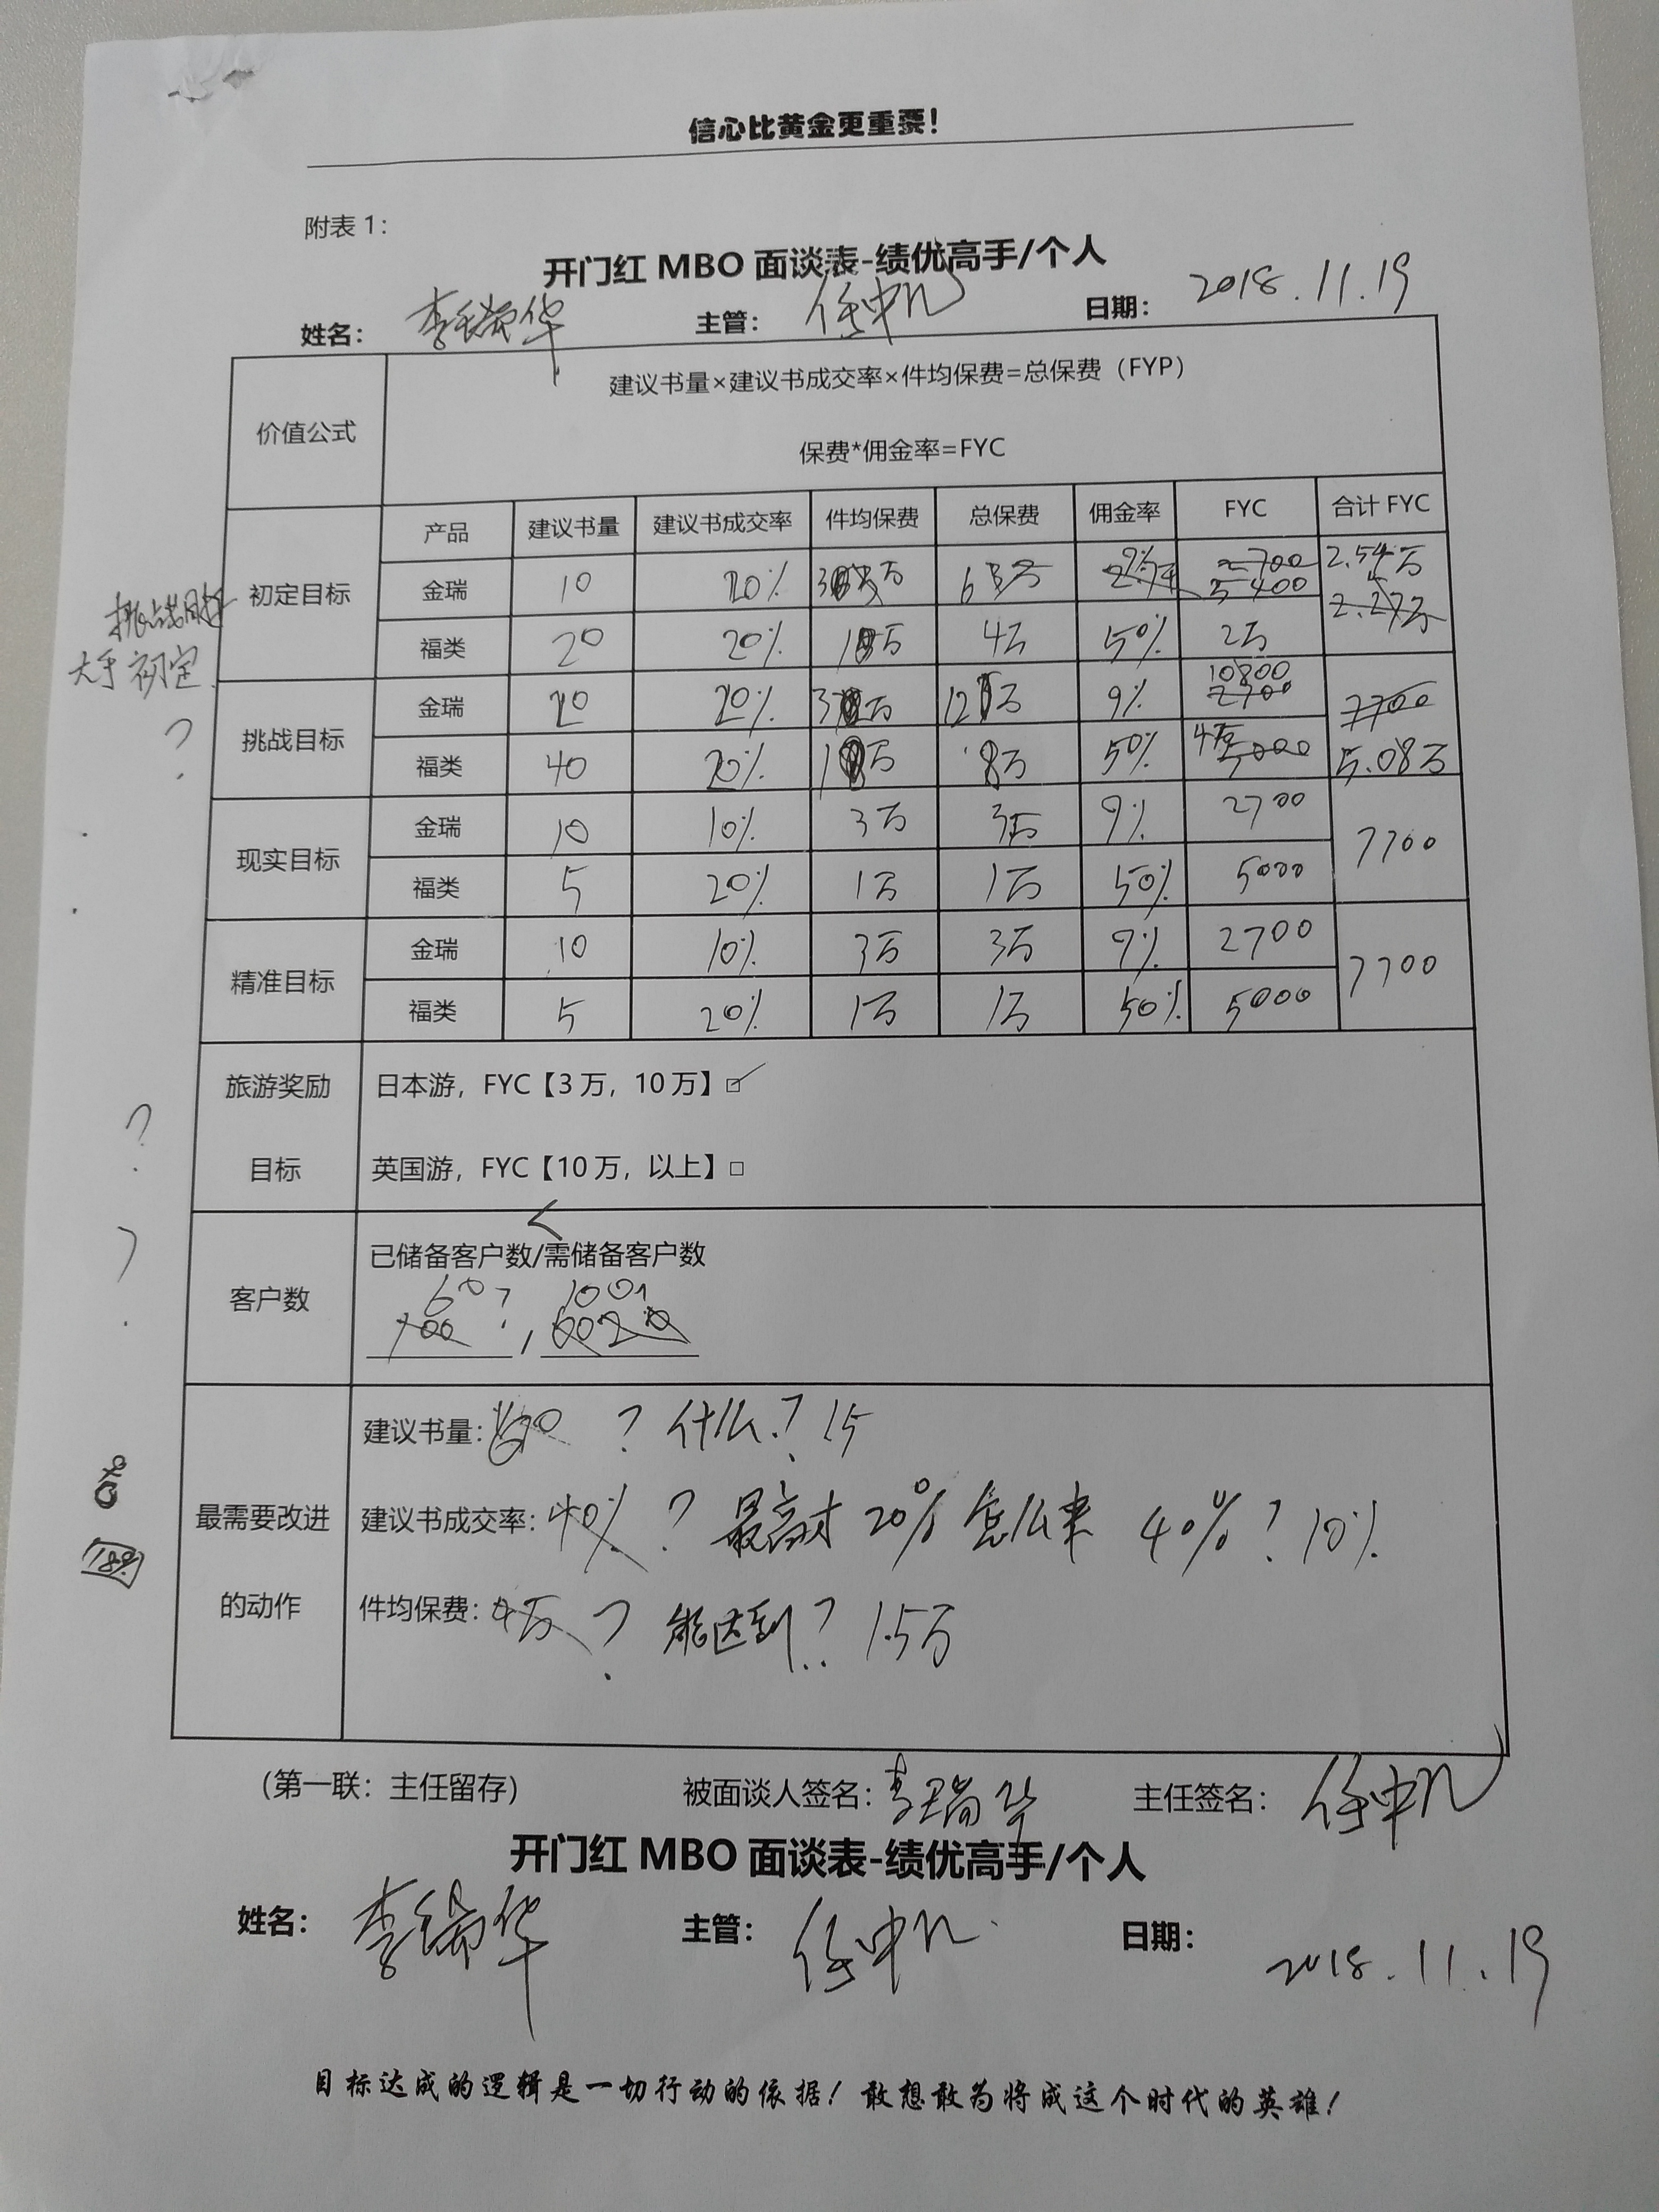 信心比黄金更重要！
附表 1：
开门红 MBO 面谈表-绩优高手/个人
姓名： 李瑞华 主管： 日期： 2018.11.19
价值公式
建议书量×建议书成交率×件均保费=总保费（FYP）
保费*佣金率=FYC
产品 建议书量 建议书成交率 件均保费 总保费 佣金率 FYC 合计 FYC
挑战目标
大于初定
?
初定目标
金瑞 10 20% 3万 6万 9% 2700 5400 2.54万
2.27万
福类 20 20% 1万 4万 50% 2万
挑战目标
金瑞 20 20% 3万 12万 9% 10800 2700 7700
福类 40 20% 1万 8万 50% 4万 5000 5.08万
现实目标
金瑞 10 10% 3万 3万 9% 2700 7700
福类 5 20% 1万 1万 50% 5000
精准目标
金瑞 10 10% 3万 3万 9% 2700 7700
福类 5 20% 1万 1万 50% 5000
旅游奖励
目标
日本游，FYC【3 万，10 万】□
英国游，FYC【10 万，以上】□
?
?
客户数
<
已储备客户数/需储备客户数
60? 100
100 ? /
最需要改进
的动作
建议书量： ? 什么? 15
建议书成交率：40% ? 最高才 20% 怎么来 40%? 10%
件均保费：4万 ? 能达到? 1.5万
（第一联：主任留存） 被面谈人签名：李瑞华 主任签名：
开门红 MBO 面谈表-绩优高手/个人
姓名： 李瑞华 主管： 日期： 2018.11.19
目标达成的逻辑是一切行动的依据！敢想敢为将成这个时代的英雄！